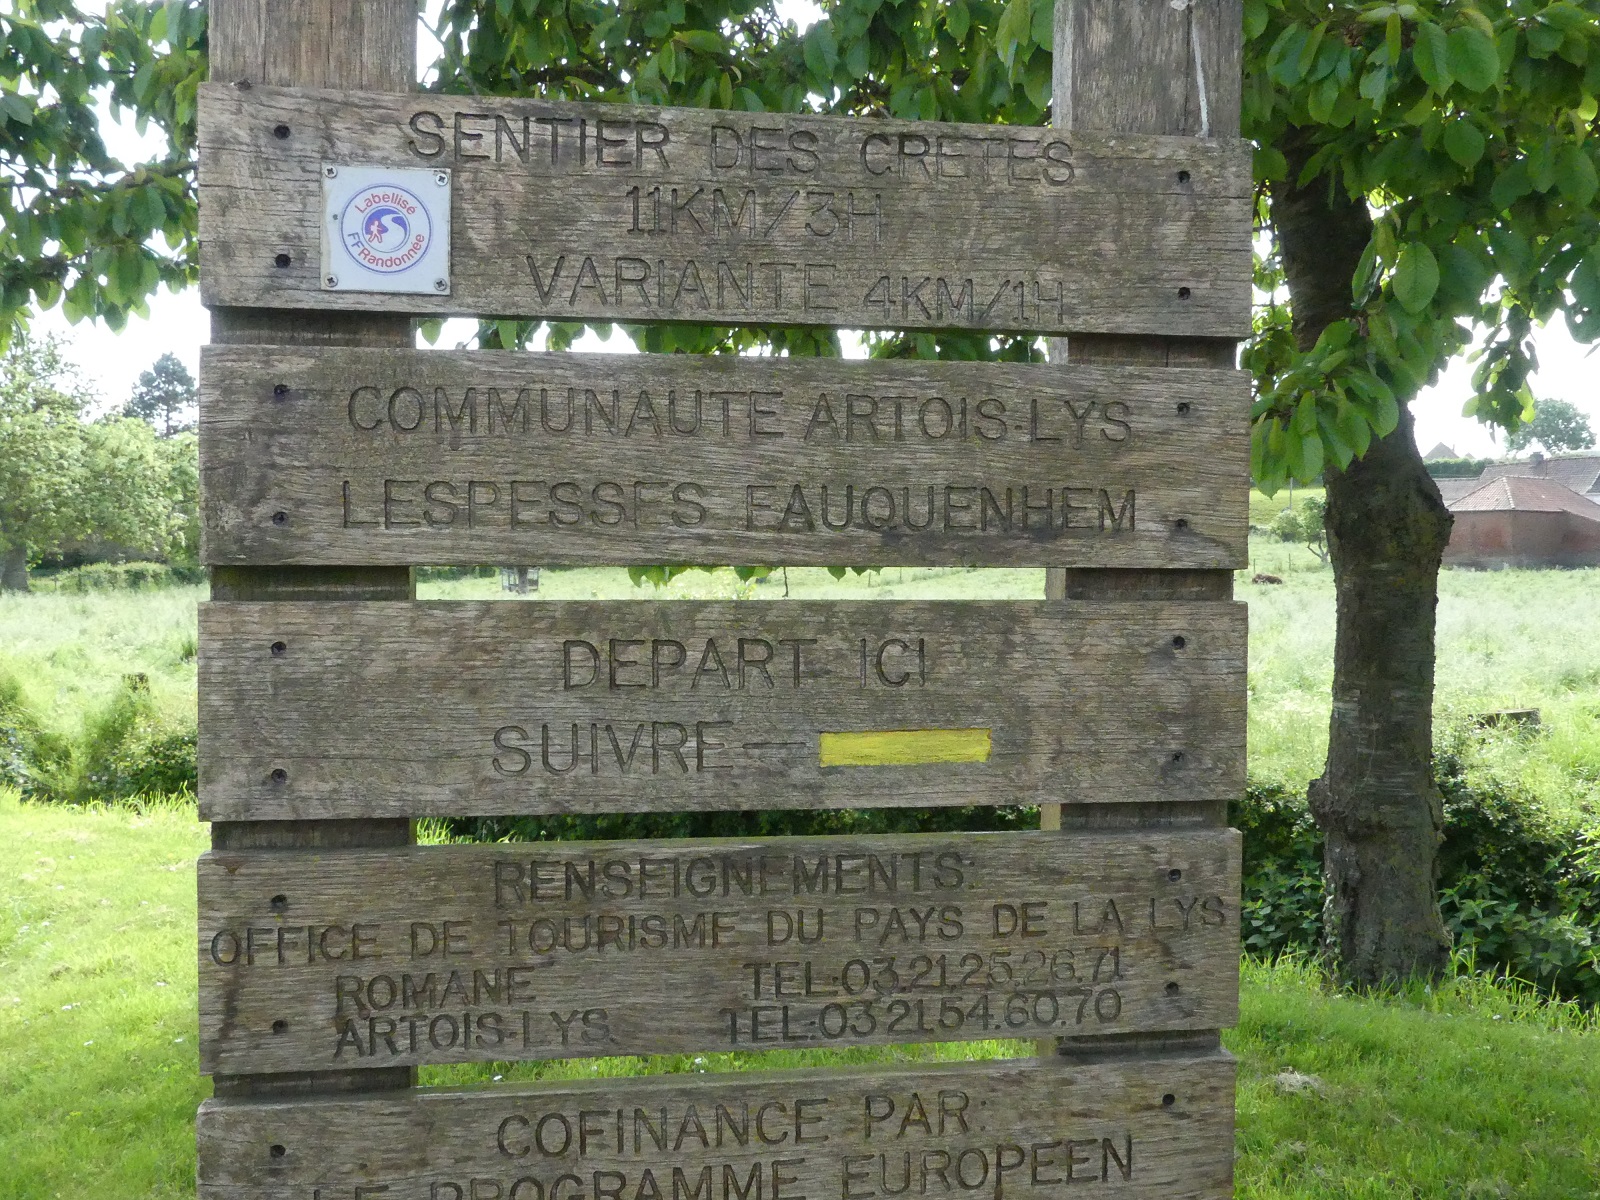 SENTIER DES CRETES
Labellisé
FFRandonnée
11KM/3H
VARIANTE 4KM/1H
COMMUNAUTE ARTOIS-LYS
LESPESSES FAUQUENHEM
DEPART ICI
SUIVRE —
RENSEIGNEMENTS:
OFFICE DE TOURISME DU PAYS DE LA LYS
ROMANE TEL:03.21.25.26.71
ARTOIS-LYS. TEL:03 21.54.60.70
COFINANCE PAR:
LE PROGRAMME EUROPEEN